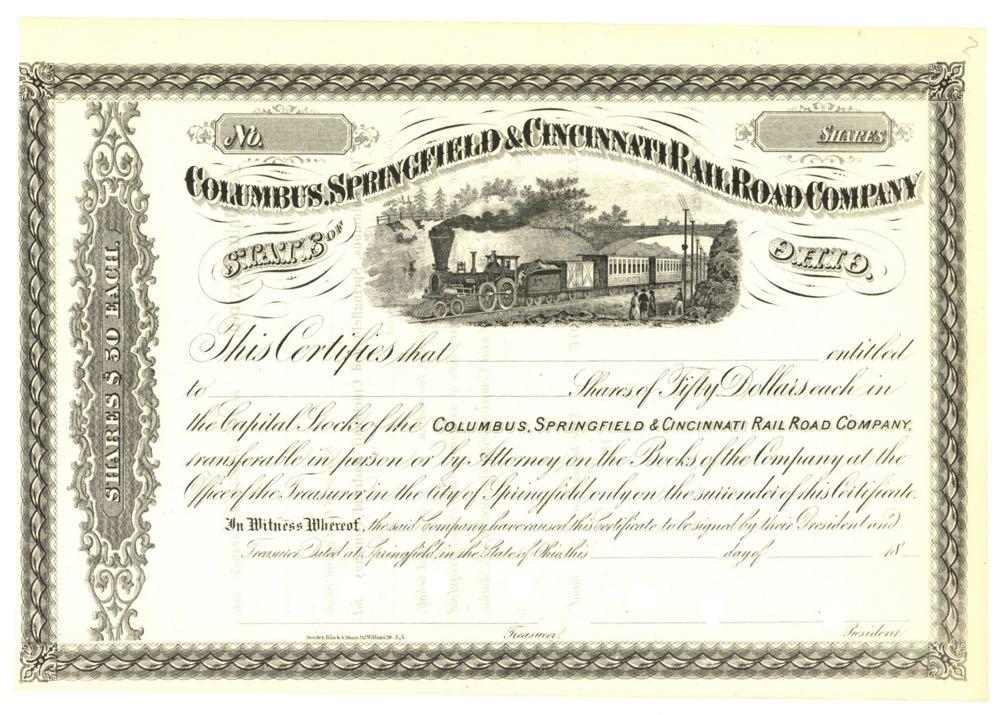 No.
SHARES
COLUMBUS, SPRINGFIELD & CINCINNATI RAIL ROAD COMPANY
STATE OF OHIO.
SHARES $50 EACH.
This Certifies that entitled
to Shares of Fifty Dollars each in
the Capital Stock of the COLUMBUS, SPRINGFIELD & CINCINNATI RAIL ROAD COMPANY,
transferable in person or by Attorney on the Books of the Company at the
Office of the Treasurer in the City of Springfield only on the surrender of this Certificate.
In Witness Whereof, the said Company have caused this Certificate to be signed by their President and
Treasurer Dated at Springfield, in the State of Ohio this day of 18
Treasurer.
President.
William St. N.Y.